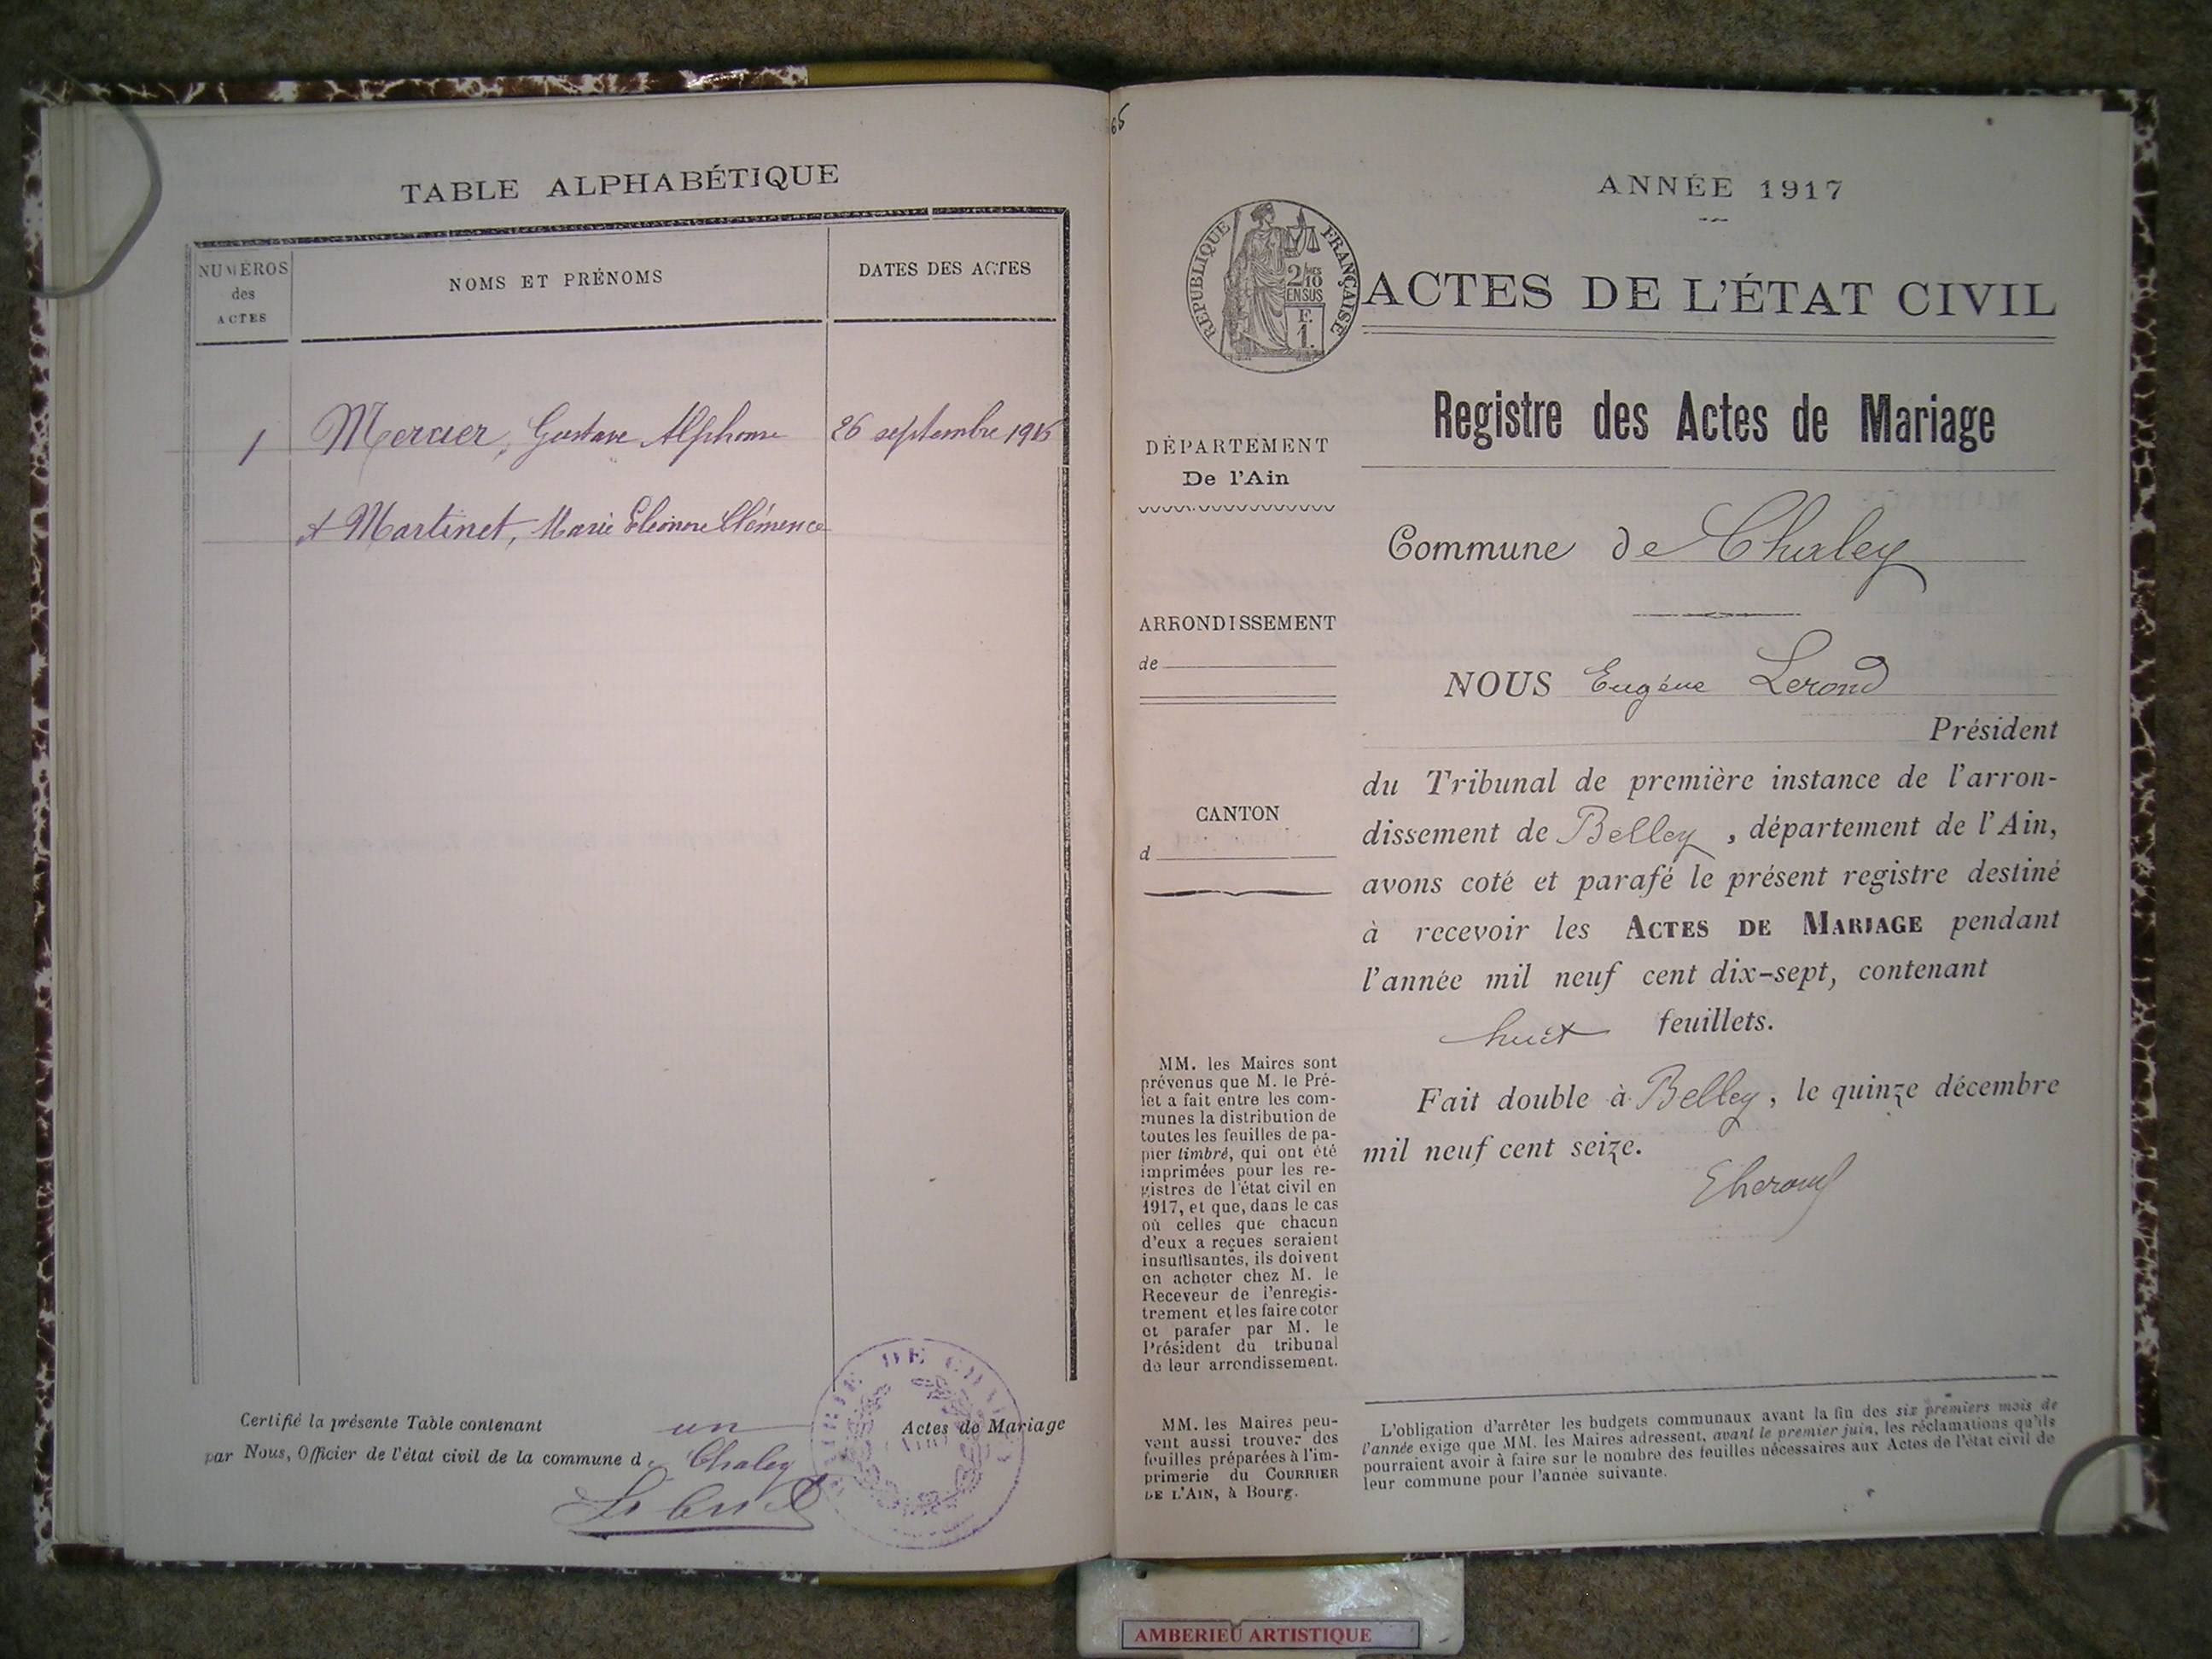 TABLE ALPHABÉTIQUE
NUMÉROS
des
ACTES
NOMS ET PRÉNOMS
DATES DES ACTES
1 Mercier, Gustave Alphonse 26 septembre 1916
et Martinet, Marie Eléonore Clémence
Certifié la présente Table contenant un Actes de Mariage
par Nous, Officier de l'état civil de la commune de Chaley
MAIRIE DE CHALEY
(AIN)
65
ANNÉE 1917
RÉPUBLIQUE FRANÇAISE
2/10
EN SUS
F.
1.
ACTES DE L'ÉTAT CIVIL
Registre des Actes de Mariage
DÉPARTEMENT
De l'Ain
Commune de Chaley
ARRONDISSEMENT
de
CANTON
d
NOUS Eugène Lerond
Président
du Tribunal de première instance de l'arron-
dissement de Belley, département de l'Ain,
avons coté et parafé le présent registre destiné
à recevoir les ACTES DE MARIAGE pendant
l'année mil neuf cent dix-sept, contenant
huit feuillets.
Fait double à Belley, le quinze décembre
mil neuf cent seize.
ELerond
MM. les Maires sont
prévenus que M. le Pré-
fet a fait entre les com-
munes la distribution de
toutes les feuilles de pa-
pier timbré, qui ont été
imprimées pour les re-
gistres de l'état civil en
1917, et que, dans le cas
où celles que chacun
d'eux a reçues seraient
insuffisantes, ils doivent
en acheter chez M. le
Receveur de l'enregis-
trement et les faire coter
et parafer par M. le
Président du tribunal
de leur arrondissement.
MM. les Maires peu-
vent aussi trouver des
feuilles préparées à l'im-
primerie du COURRIER
DE L'AIN, à Bourg.
L'obligation d'arrêter les budgets communaux avant la fin des six premiers mois de
l'année exige que MM. les Maires adressent, avant le premier juin, les réclamations qu'ils
pourraient avoir à faire sur le nombre des feuilles nécessaires aux Actes de l'état civil de
leur commune pour l'année suivante.
AMBERIEU ARTISTIQUE